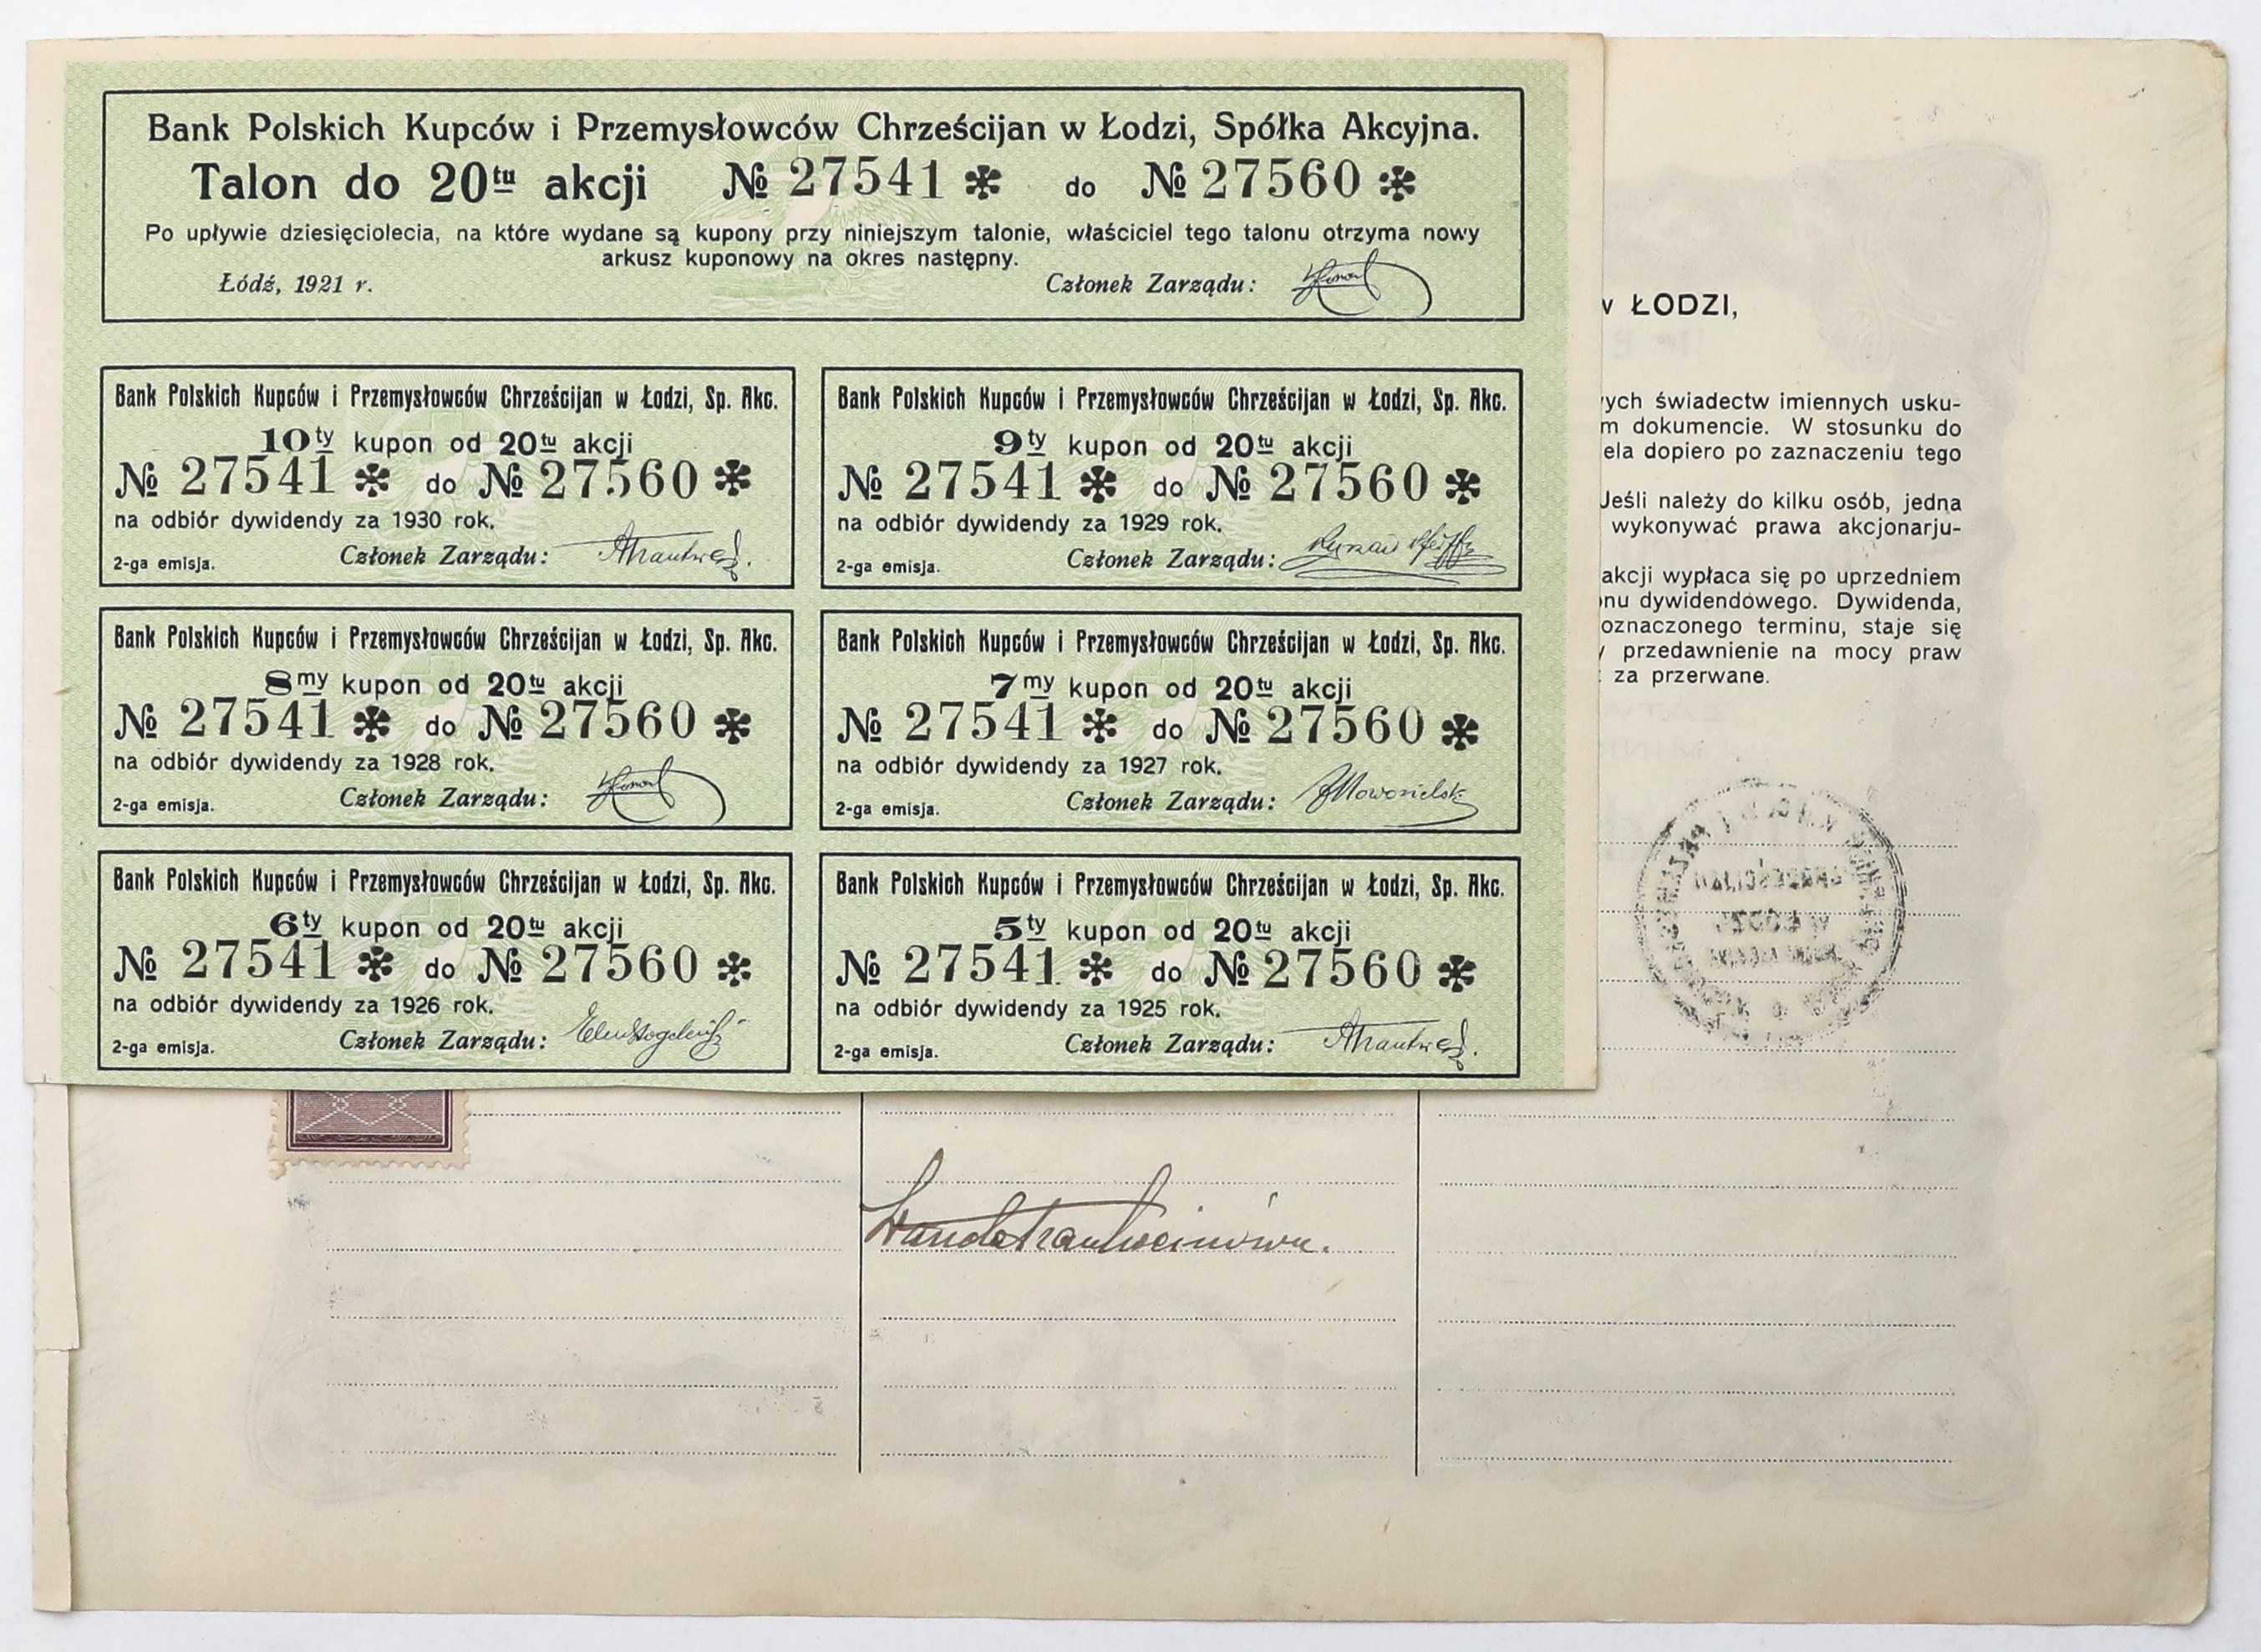 Bank Polskich Kupców i Przemysłowców Chrześcijan w Łodzi, Spółka Akcyjna.
Talon do 20tu akcji № 27541 * do № 27560 *
Po upływie dziesięciolecia, na które wydane są kupony przy niniejszym talonie, właściciel tego talonu otrzyma nowy
arkusz kuponowy na okres następny.
Łódź, 1921 r. Członek Zarządu:
Bank Polskich Kupców i Przemysłowców Chrześcijan w Łodzi, Sp. Akc.
10ty kupon od 20tu akcji
№ 27541 * do № 27560 *
na odbiór dywidendy za 1930 rok.
2-ga emisja. Członek Zarządu:
Bank Polskich Kupców i Przemysłowców Chrześcijan w Łodzi, Sp. Akc.
9ty kupon od 20tu akcji
№ 27541 * do № 27560 *
na odbiór dywidendy za 1929 rok.
2-ga emisja. Członek Zarządu:
Bank Polskich Kupców i Przemysłowców Chrześcijan w Łodzi, Sp. Akc.
8my kupon od 20tu akcji
№ 27541 * do № 27560 *
na odbiór dywidendy za 1928 rok.
2-ga emisja. Członek Zarządu:
Bank Polskich Kupców i Przemysłowców Chrześcijan w Łodzi, Sp. Akc.
7my kupon od 20tu akcji
№ 27541 * do № 27560 *
na odbiór dywidendy za 1927 rok.
2-ga emisja. Członek Zarządu:
Bank Polskich Kupców i Przemysłowców Chrześcijan w Łodzi, Sp. Akc.
6ty kupon od 20tu akcji
№ 27541 * do № 27560 *
na odbiór dywidendy za 1926 rok.
2-ga emisja. Członek Zarządu:
Bank Polskich Kupców i Przemysłowców Chrześcijan w Łodzi, Sp. Akc.
5ty kupon od 20tu akcji
№ 27541 * do № 27560 *
na odbiór dywidendy za 1925 rok.
2-ga emisja. Członek Zarządu:
w ŁODZI,
ych świadectw imiennych usku-
m dokumencie. W stosunku do
ela dopiero po zaznaczeniu tego
Jeśli należy do kilku osób, jedna
wykonywać prawa akcjonarju-
akcji wypłaca się po uprzedniem
onu dywidendowego. Dywidenda,
oznaczonego terminu, staje się
y przedawnienie na mocy praw
za przerwane.